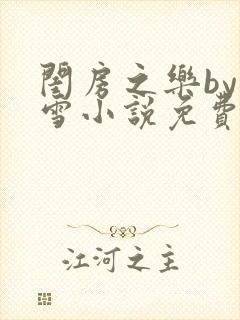 閨房之樂by
雪小說免費
江河之主